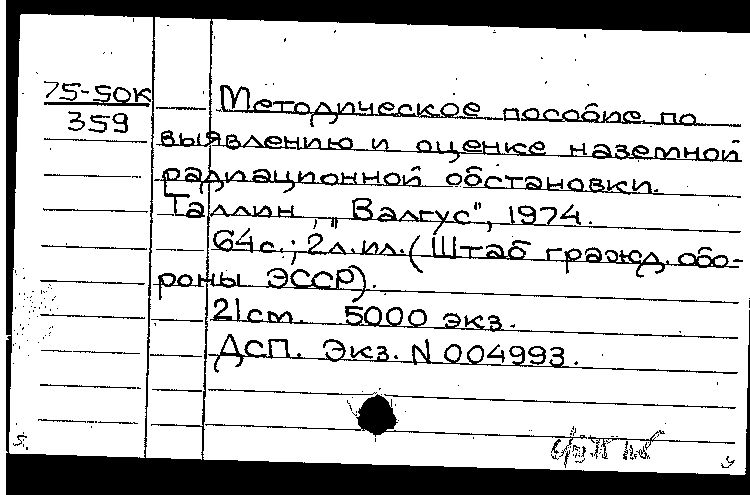 75-50К
359
Методическое пособие по
выявлению и оценке наземной
радиационной обстановки.
Таллин, „Валгус", 1974.
64с.; 2л.ил. (Штаб гражд. обо-
роны ЭССР).
21см. 5000 экз.
ДСП. Экз. N 004993.